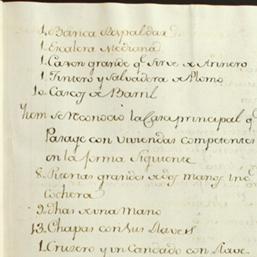 1. Banca Respaldada
1. Escalera Mediana
1. Caxon grande q.e Sirve de Arinero
1. Tintero y Salvadera de Plomo
10. Arcos de Barril
Ytem se Reconocio la Casa principal q.e
Paraje con viviendas competentes
en la forma Siguiente
8. Puertas grandes de dos manos inc
Cochera
2. Dhas de una Mano
13. Chapas con sus Llaves
1. Cruzero y un Candado con Llave